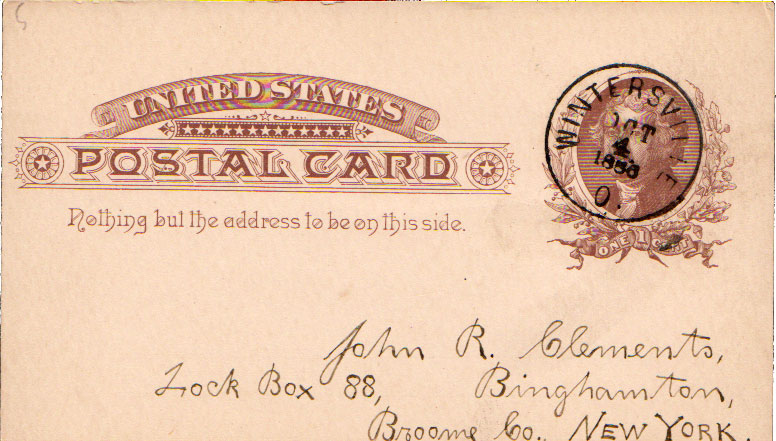 UNITED STATES
POSTAL CARD
Nothing but the address to be on this side.
WINTERSVILLE
OCT
4
O.
ONE 1 CENT
John R. Clements,
Lock Box 88, Binghamton,
Broome Co., NEW YORK.